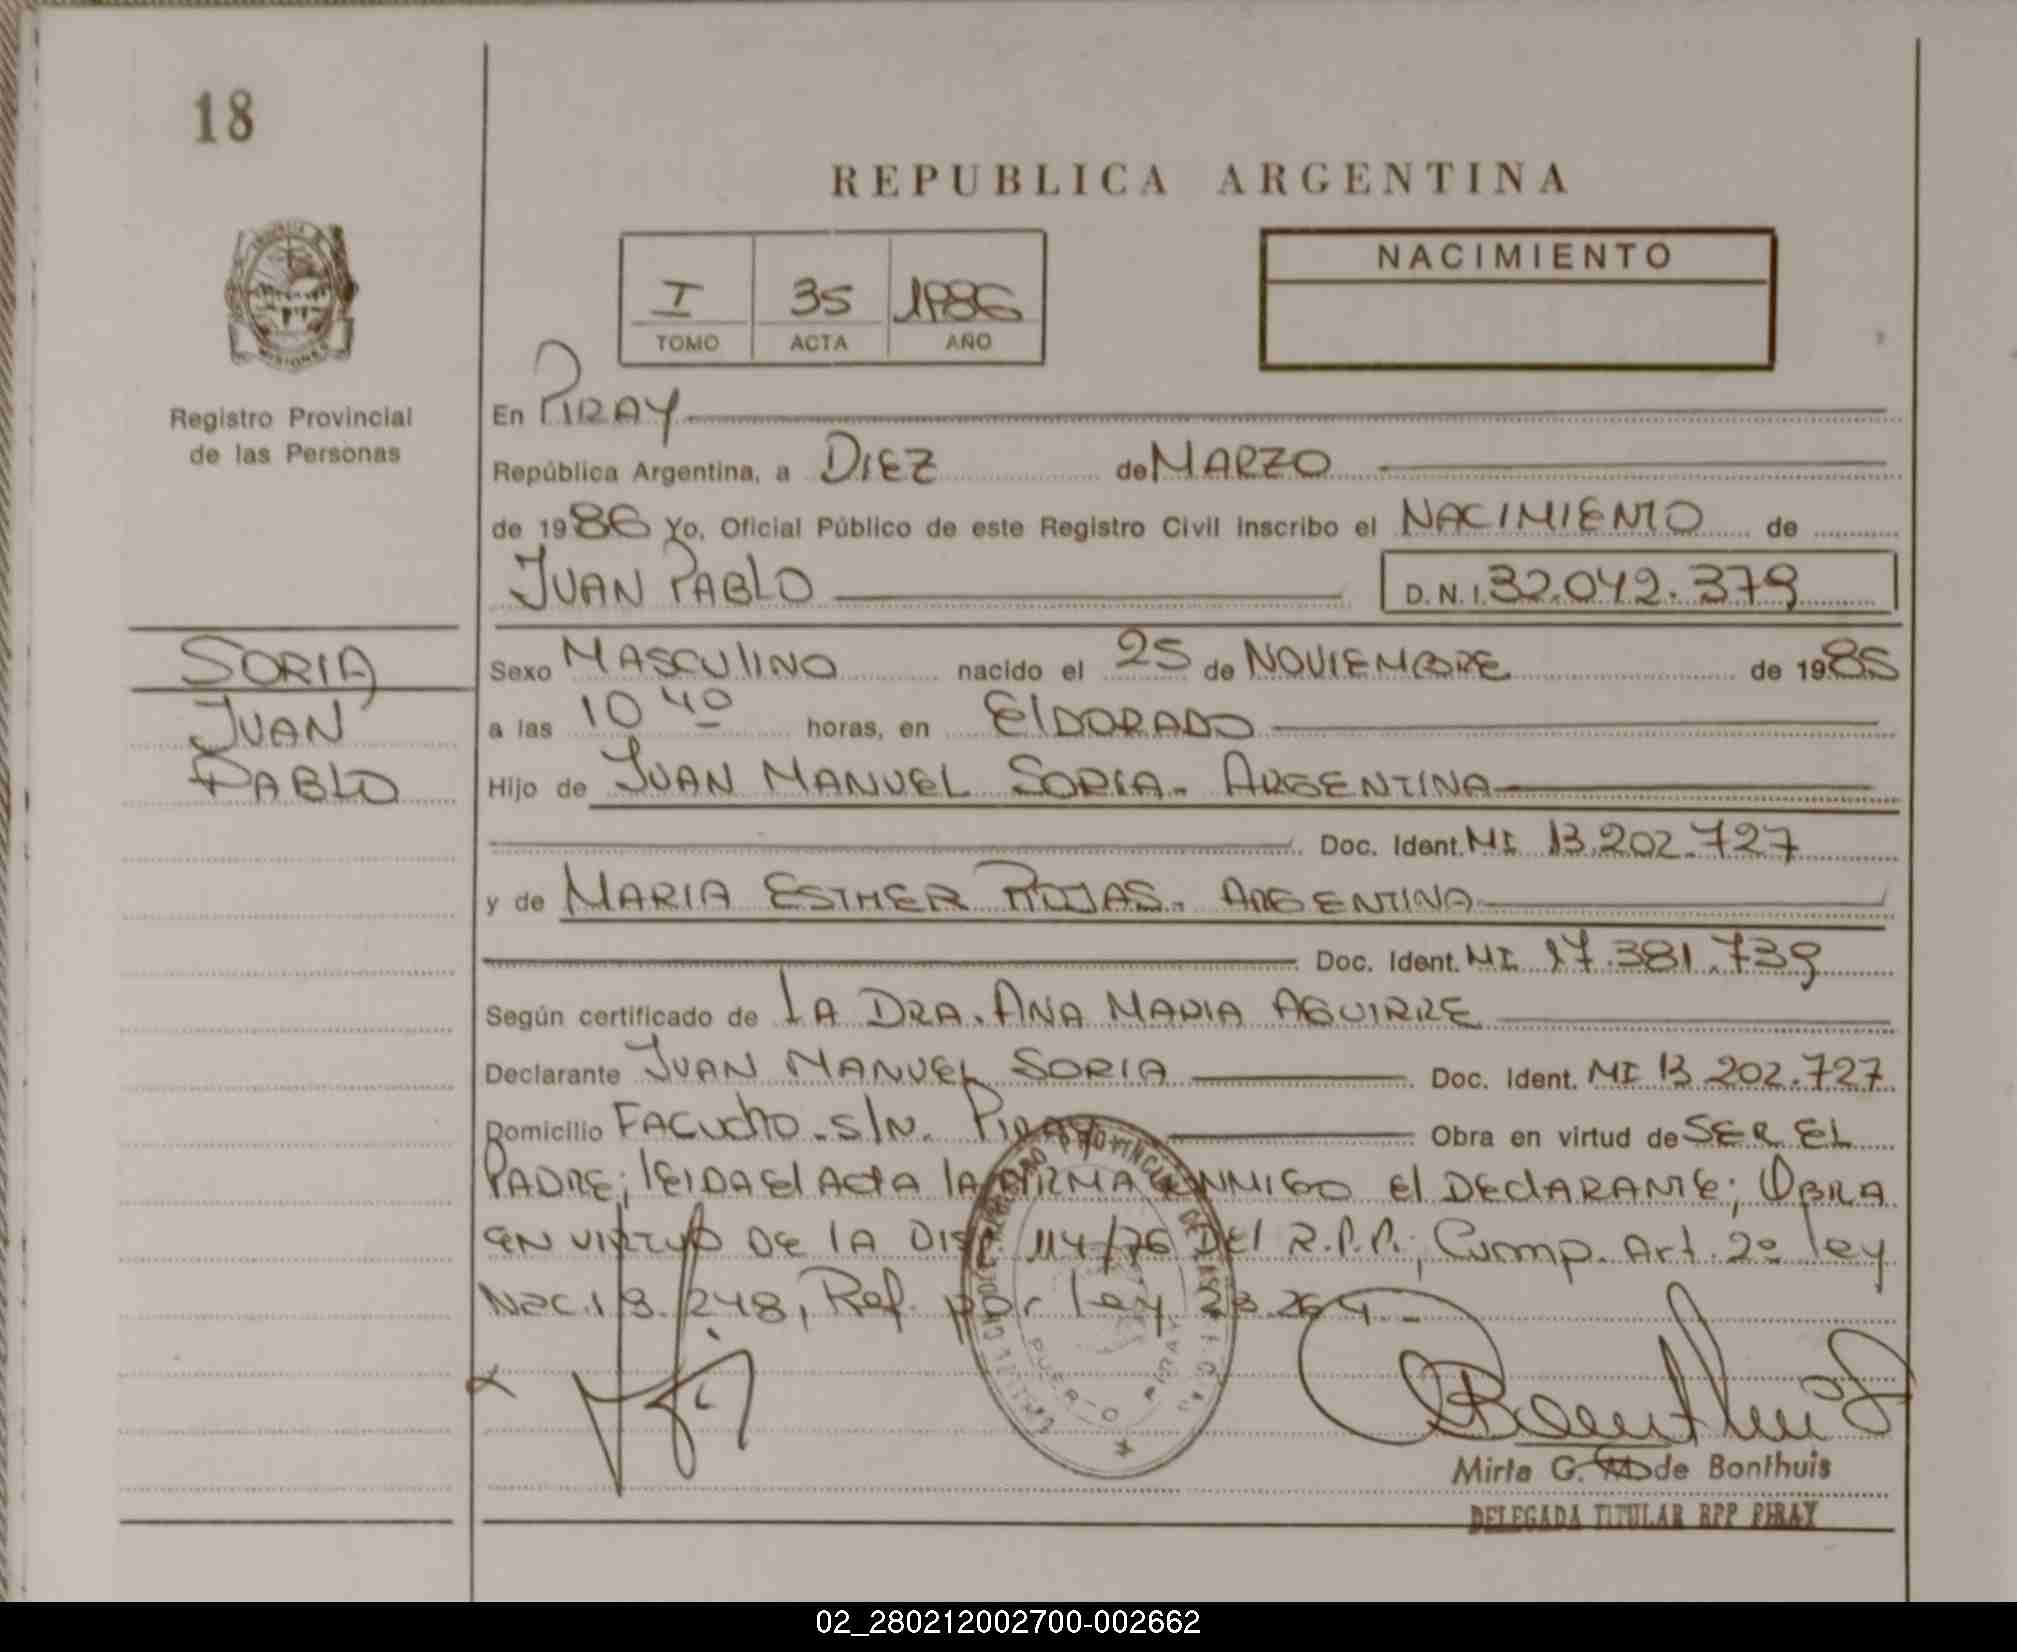 18
REPUBLICA ARGENTINA
NACIMIENTO
I 35 1986
TOMO ACTA AÑO
MISIONES
Registro Provincial
de las Personas
En PIRAY
República Argentina, a DIEZ de MARZO
de 1986 Yo, Oficial Público de este Registro Civil inscribo el NACIMIENTO de
JUAN PABLO D.N.I. 32.042.379
SORIA
JUAN
PABLO
Sexo MASCULINO nacido el 25 de NOVIEMBRE de 1985
a las 10 40 horas, en ElDORADO
Hijo de JUAN MANUEL SORIA. ARGENTINA
Doc. Ident. MI 13.202.727
y de MARIA ESTHER ROJAS. ARGENTINA
Doc. Ident. MI 17.381.739
Según certificado de LA DRA. ANA MARIA AGUIRRE
Declarante JUAN MANUEL SORIA Doc. Ident. MI 13 202.727
Domicilio FACUCHO. S/N. PIRAY Obra en virtud de SER EL
PADRE; lEIDA El ACTA lA FIRMA CONMIGO El DEClARANTE; OBRA
EN VIRTUD DE lA DISP. 114/76 DEl R.P.P.; Cump. Art. 2º ley
Nac. 18.248, Ref. por ley 23.264.-
PUERTO PIRAY
Mirta G. de Bonthuis
DELEGADA TITULAR RPP PIRAY
02_280212002700-002662